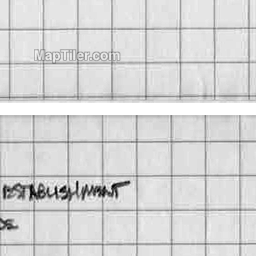 MapTiler.com
ESTABLISHMENT